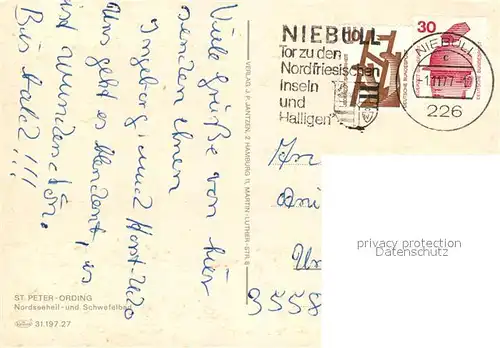 NIEBÜLL
Tor zu den
Nordfriesischen
Inseln
und
Halligen
30
DEUTSCHE BUNDESPOST
NIEBÜLL
c
-1.11.77-12
226
Viele Grüße von hier
senden Ihnen
Ingeborg und Horst-Udo
Uns geht es blendend, es
ist wunderschön.
Bis bald!!!
VERLAG J.P. JANTZEN, 2 HAMBURG 11, MARTIN-LUTHER-STR. 6
An
3558
privacy protection
Datenschutz
ST. PETER-ORDING
Nordseeheil- und Schwefelbad
31.197.27